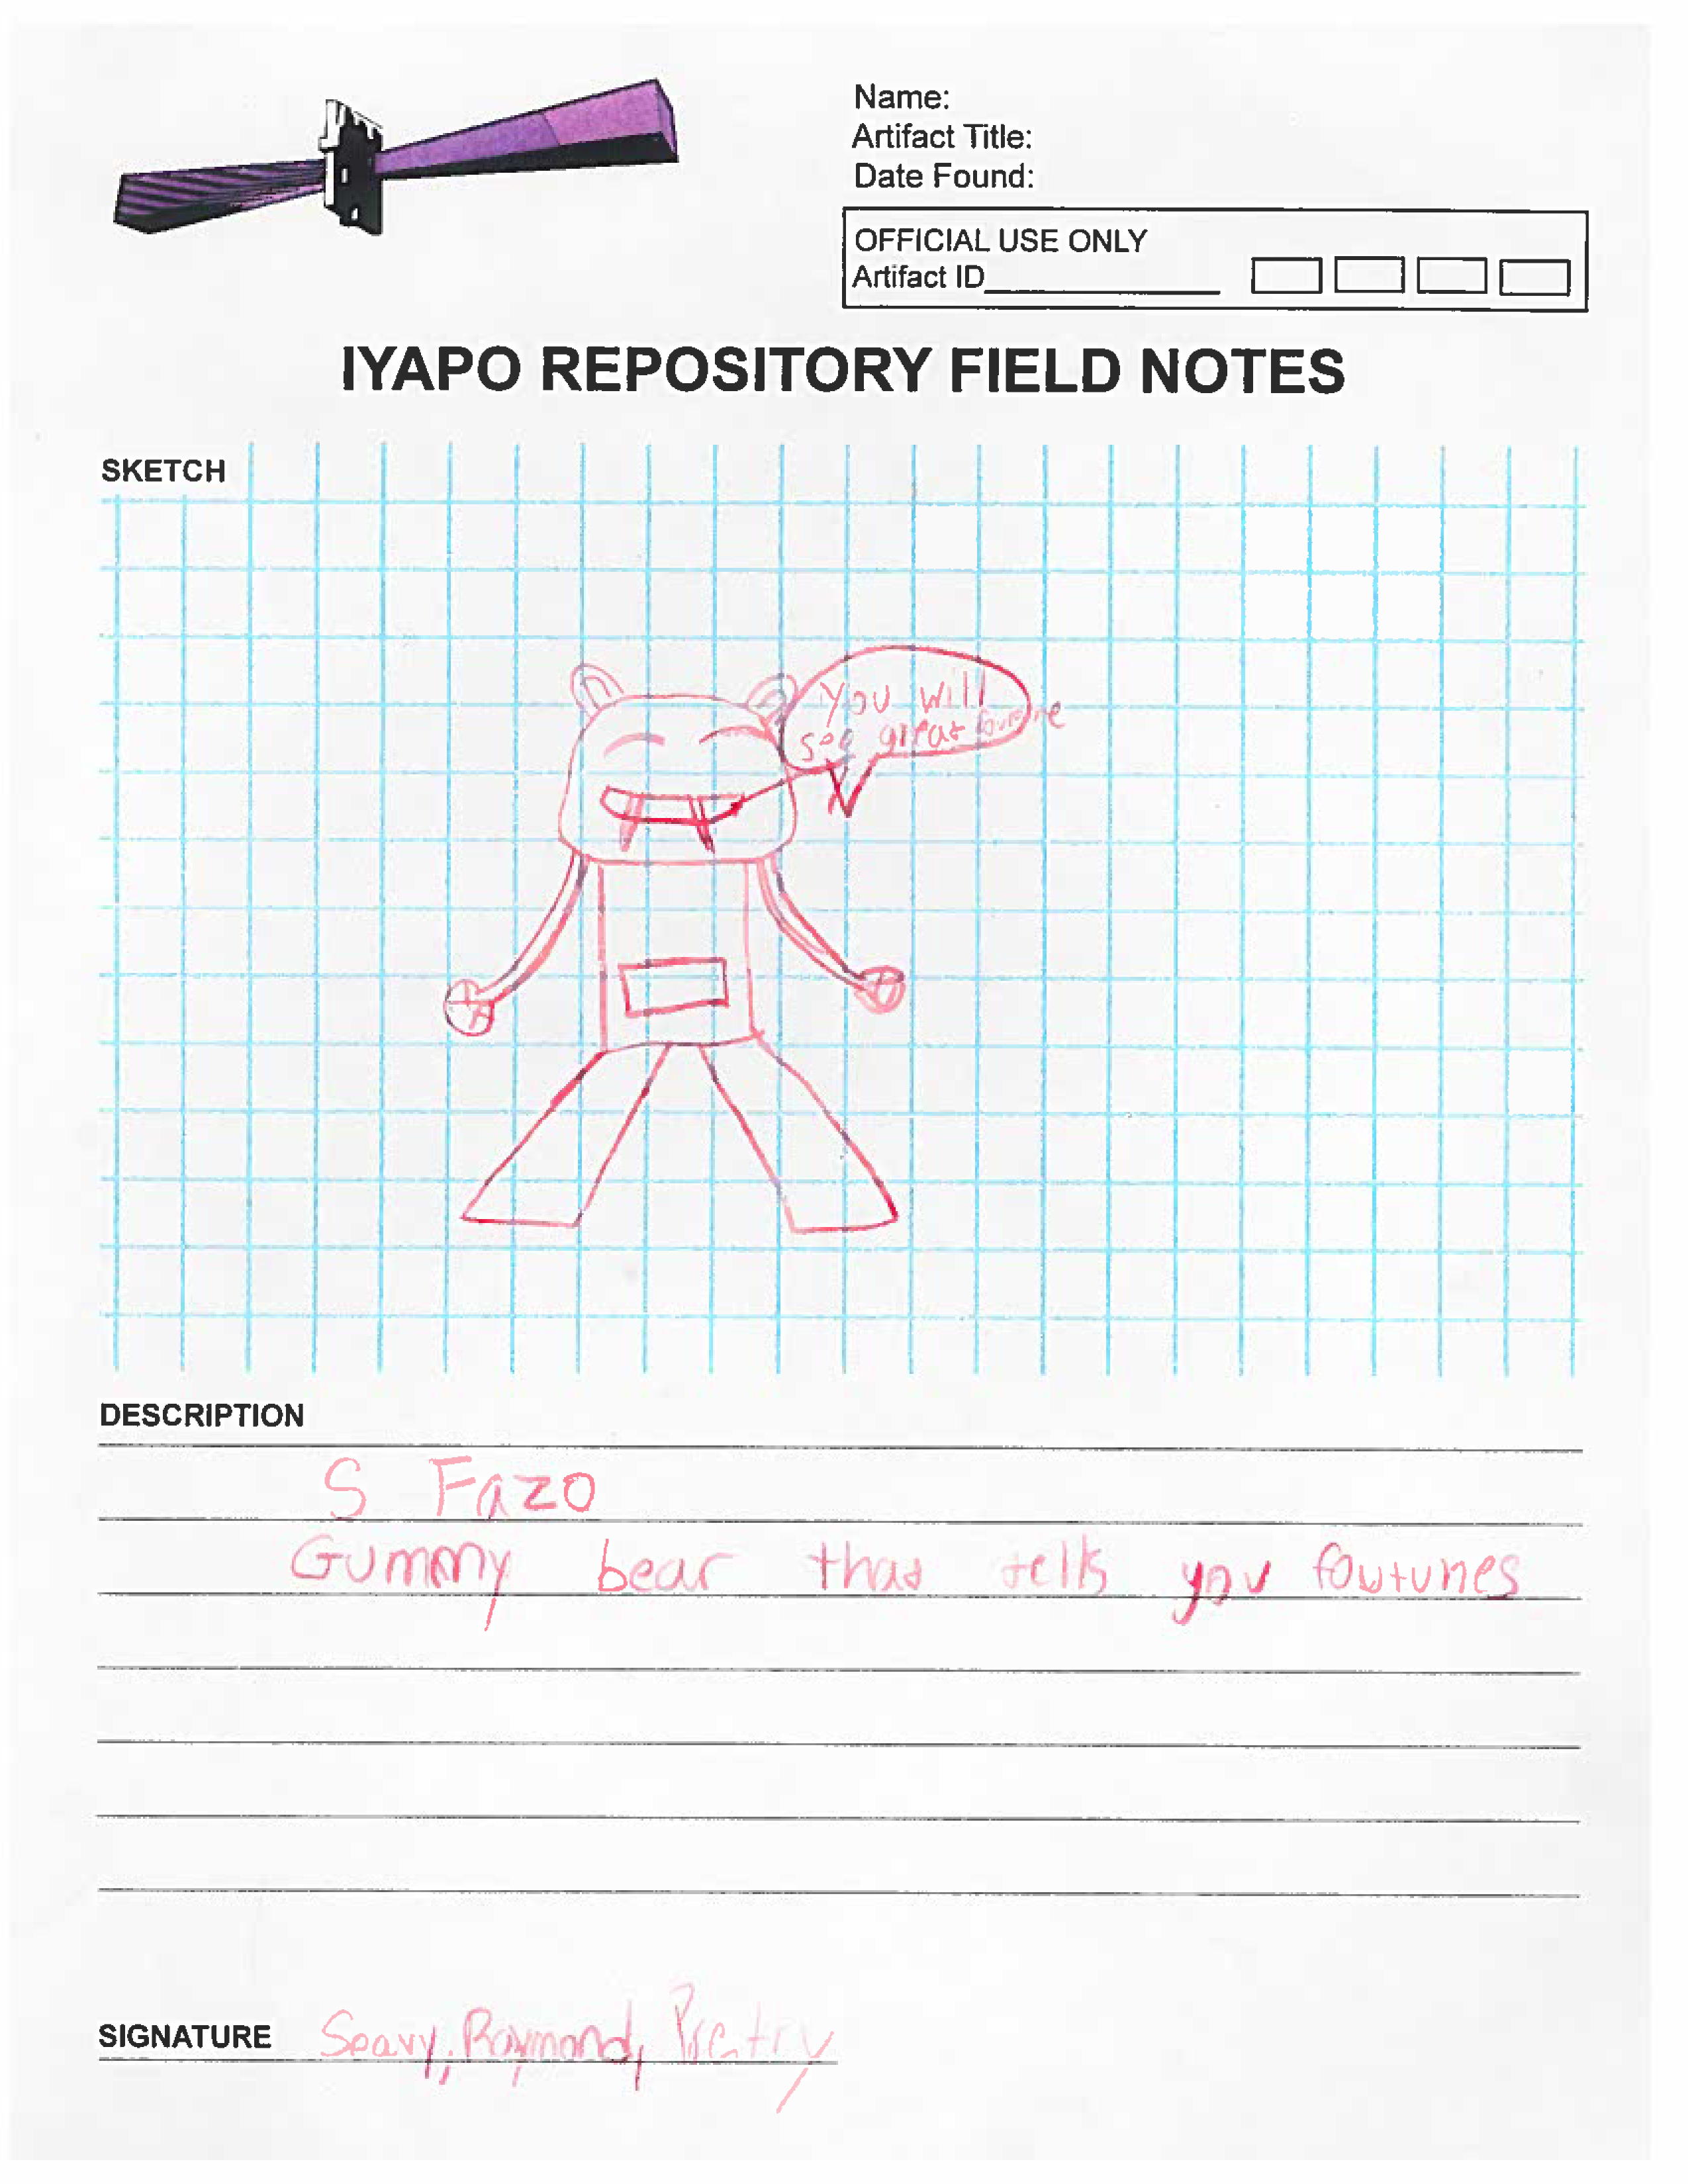 Name:
Artifact Title:
Date Found:
OFFICIAL USE ONLY
Artifact ID
IYAPO REPOSITORY FIELD NOTES
SKETCH
You will
see great
DESCRIPTION
S Fazo
Gummy bear that tells you foutunes
SIGNATURE Seavy, Raymond,